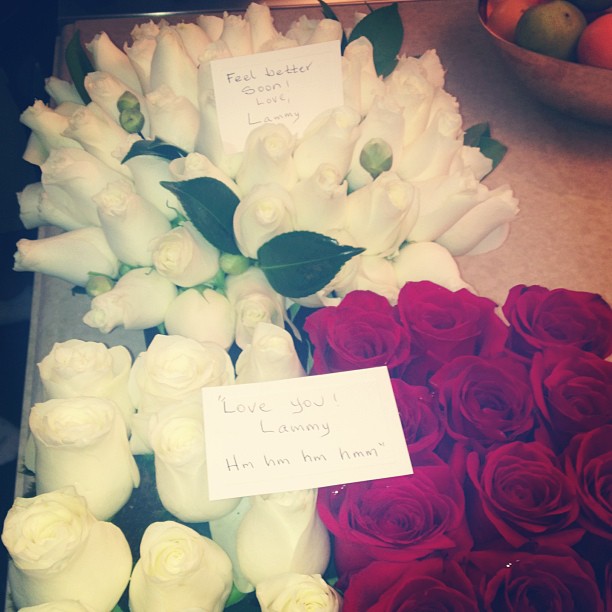 Feel better
soon!
Love,
Lammy
"Love you!
Lammy
Hm hm hm hmm"